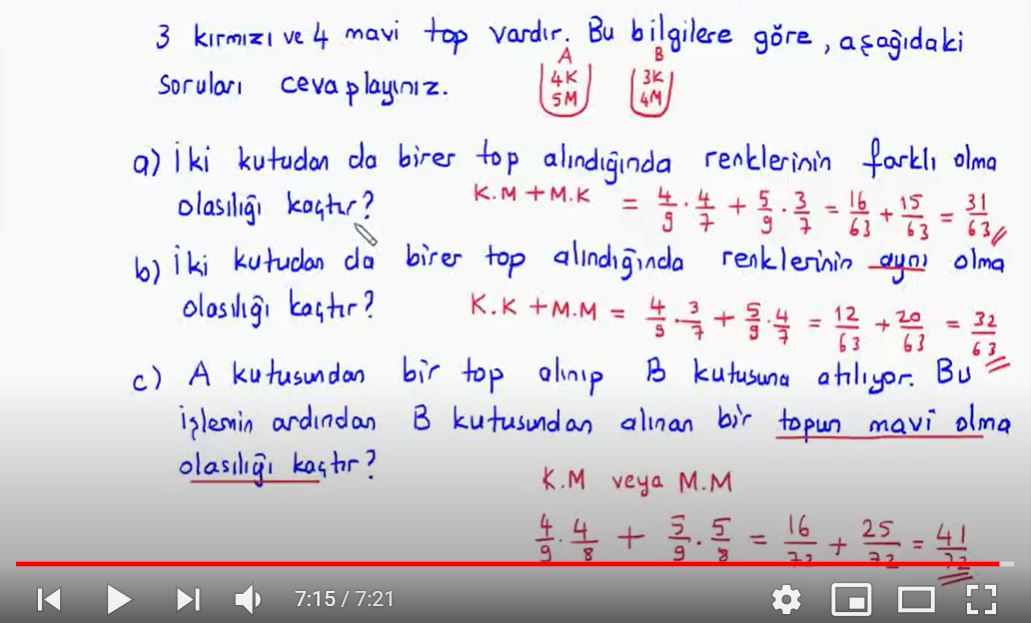 3 kırmızı ve 4 mavi top vardır. Bu bilgilere göre, aşağıdaki
soruları cevaplayınız.
A
4K
5M
B
3K
4M
a) İki kutudan da birer top alındığında renklerinin farklı olma
olasılığı kaçtır?
K.M + M.K = 4/9 . 4/7 + 5/9 . 3/7 = 16/63 + 15/63 = 31/63
b) İki kutudan da birer top alındığında renklerinin aynı olma
olasılığı kaçtır?
K.K + M.M = 4/9 . 3/7 + 5/9 . 4/7 = 12/63 + 20/63 = 32/63
c) A kutusundan bir top alınıp B kutusuna atılıyor. Bu
işlemin ardından B kutusundan alınan bir topun mavi olma
olasılığı kaçtır?
K.M veya M.M
4/9 . 4/8 + 5/9 . 5/8 = 16/72 + 25/72 = 41/72
7:15 / 7:21